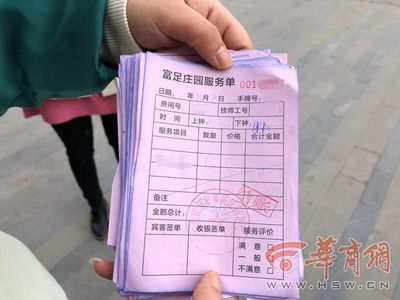 富足庄园服务单 001
日期： 年 月 日 手牌号：
房间号 技师工号
时间 上钟： 下钟：
服务项目 数量 价格 合计金额
备注
金额总计：
宾客签单 收银签单 服务评价
满意
一般
不满意
华商网
WWW.HSW.CN